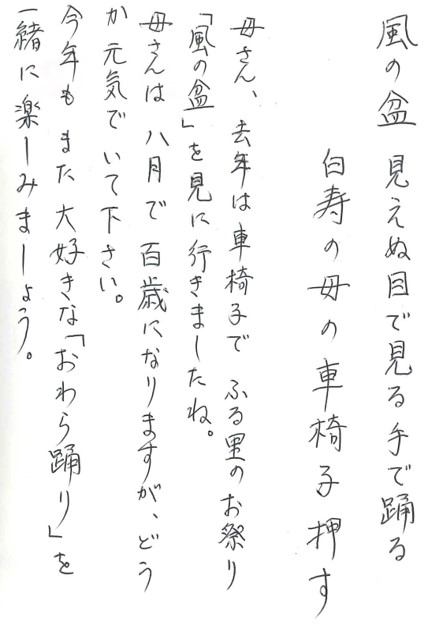 風の盆 見えぬ目で見る手で踊る
白寿の母の車椅子押す
母さん、去年は車椅子で ふる里のお祭り
「風の盆」を見に行きましたね。
母さんは 八月で 百歳になりますが、どう
か元気で いて下さい。
今年も また 大好きな「おわら踊り」を
一緒に楽しみましょう。